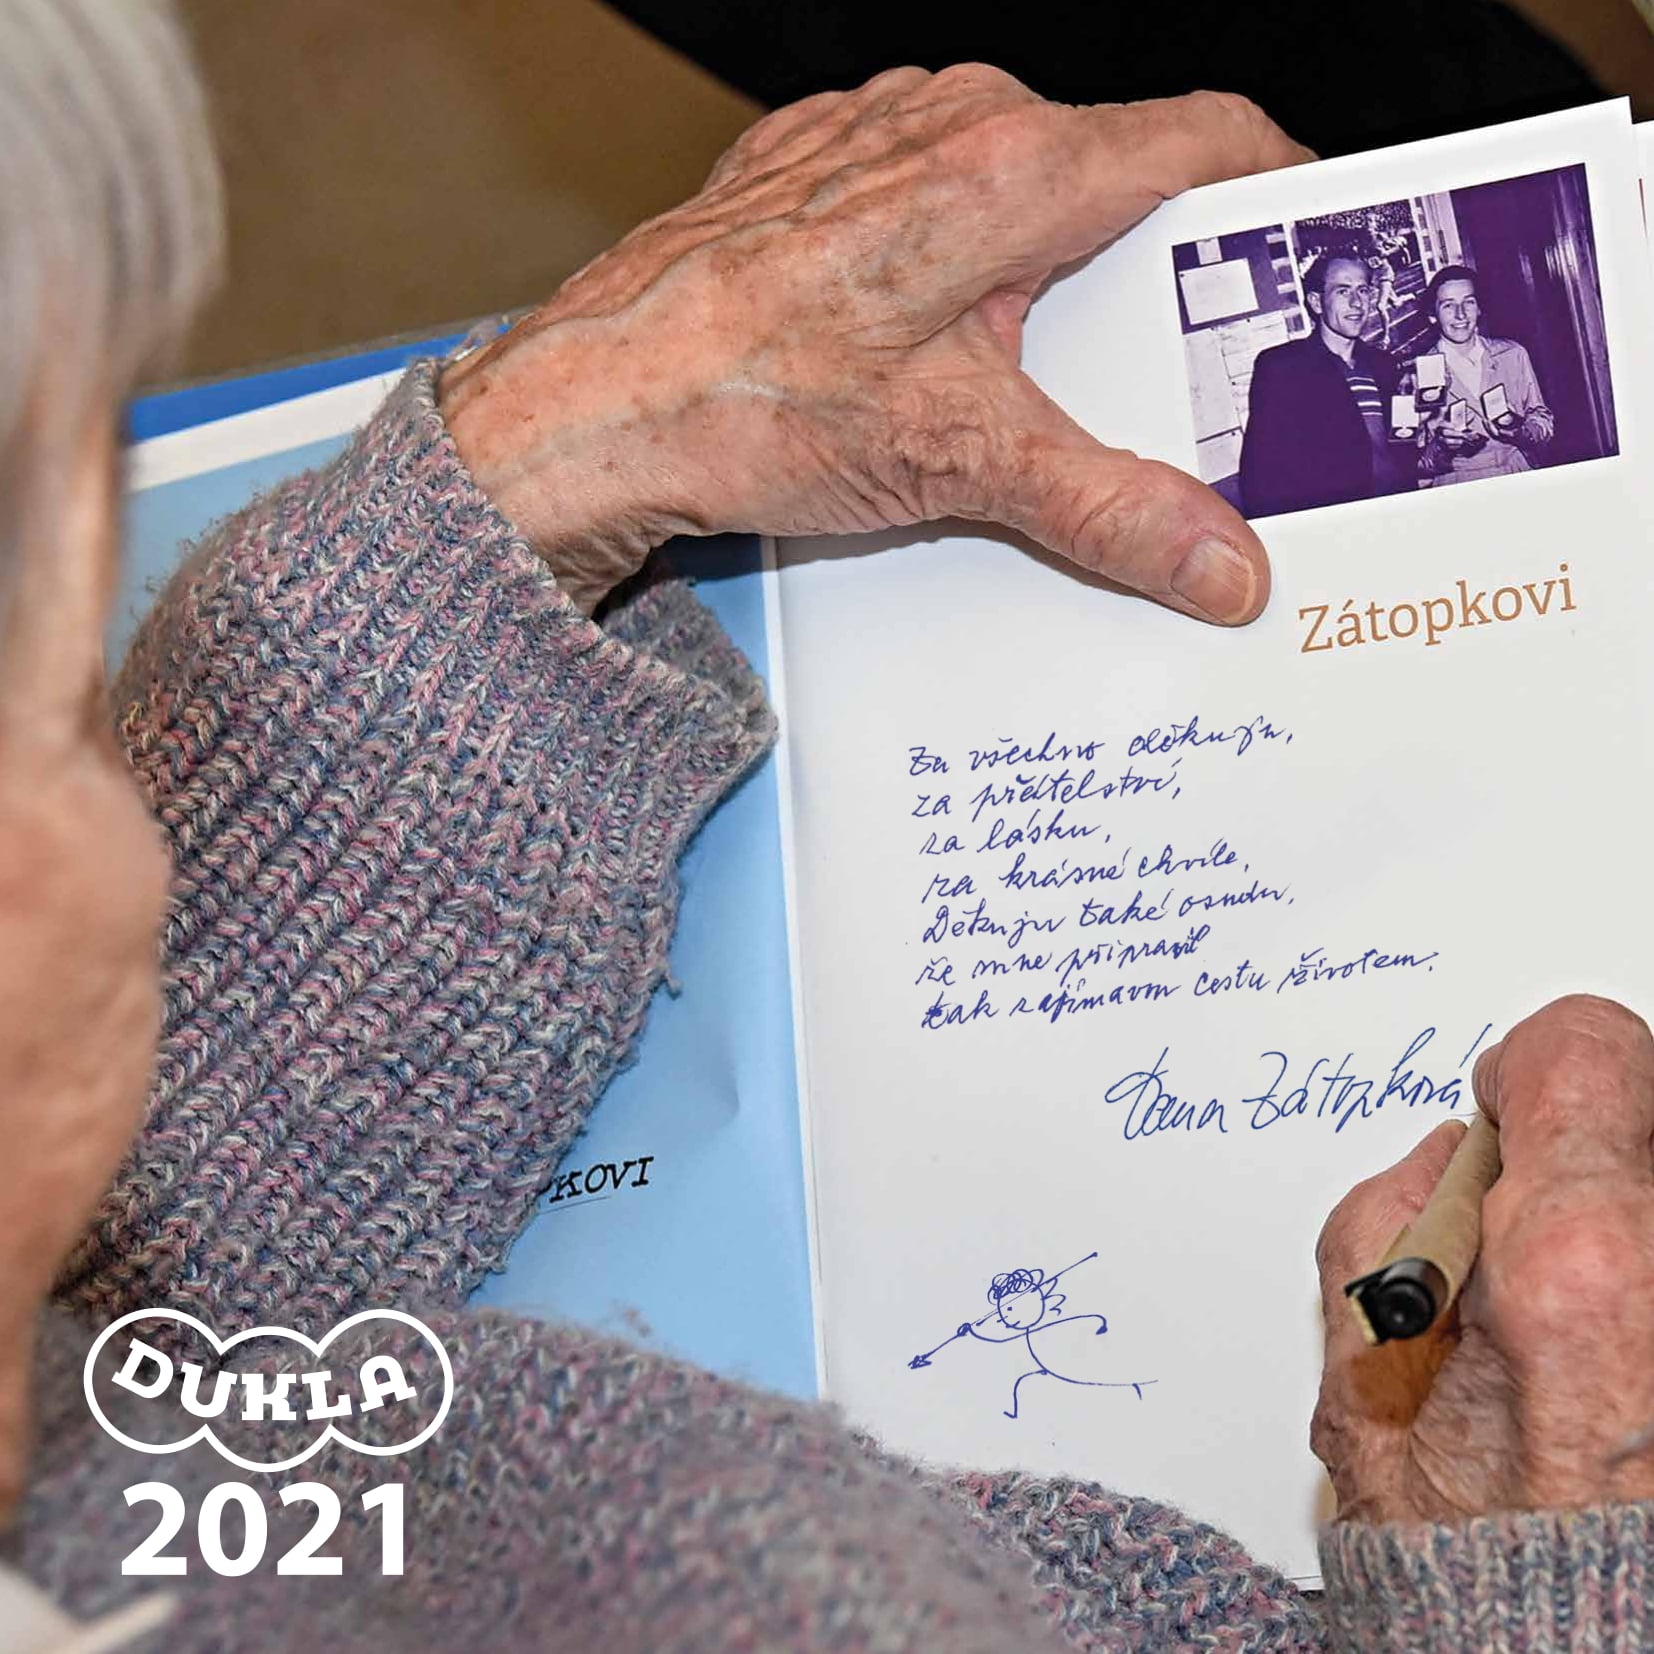 Zátopkovi
Za všechno děkuju,
za přátelství,
za lásku,
za krásné chvíle.
Děkuju také osudu,
že mne připravil
tak zajímavou cestu životem.
Dana Zátopková
PKOVI
DUKLA
2021